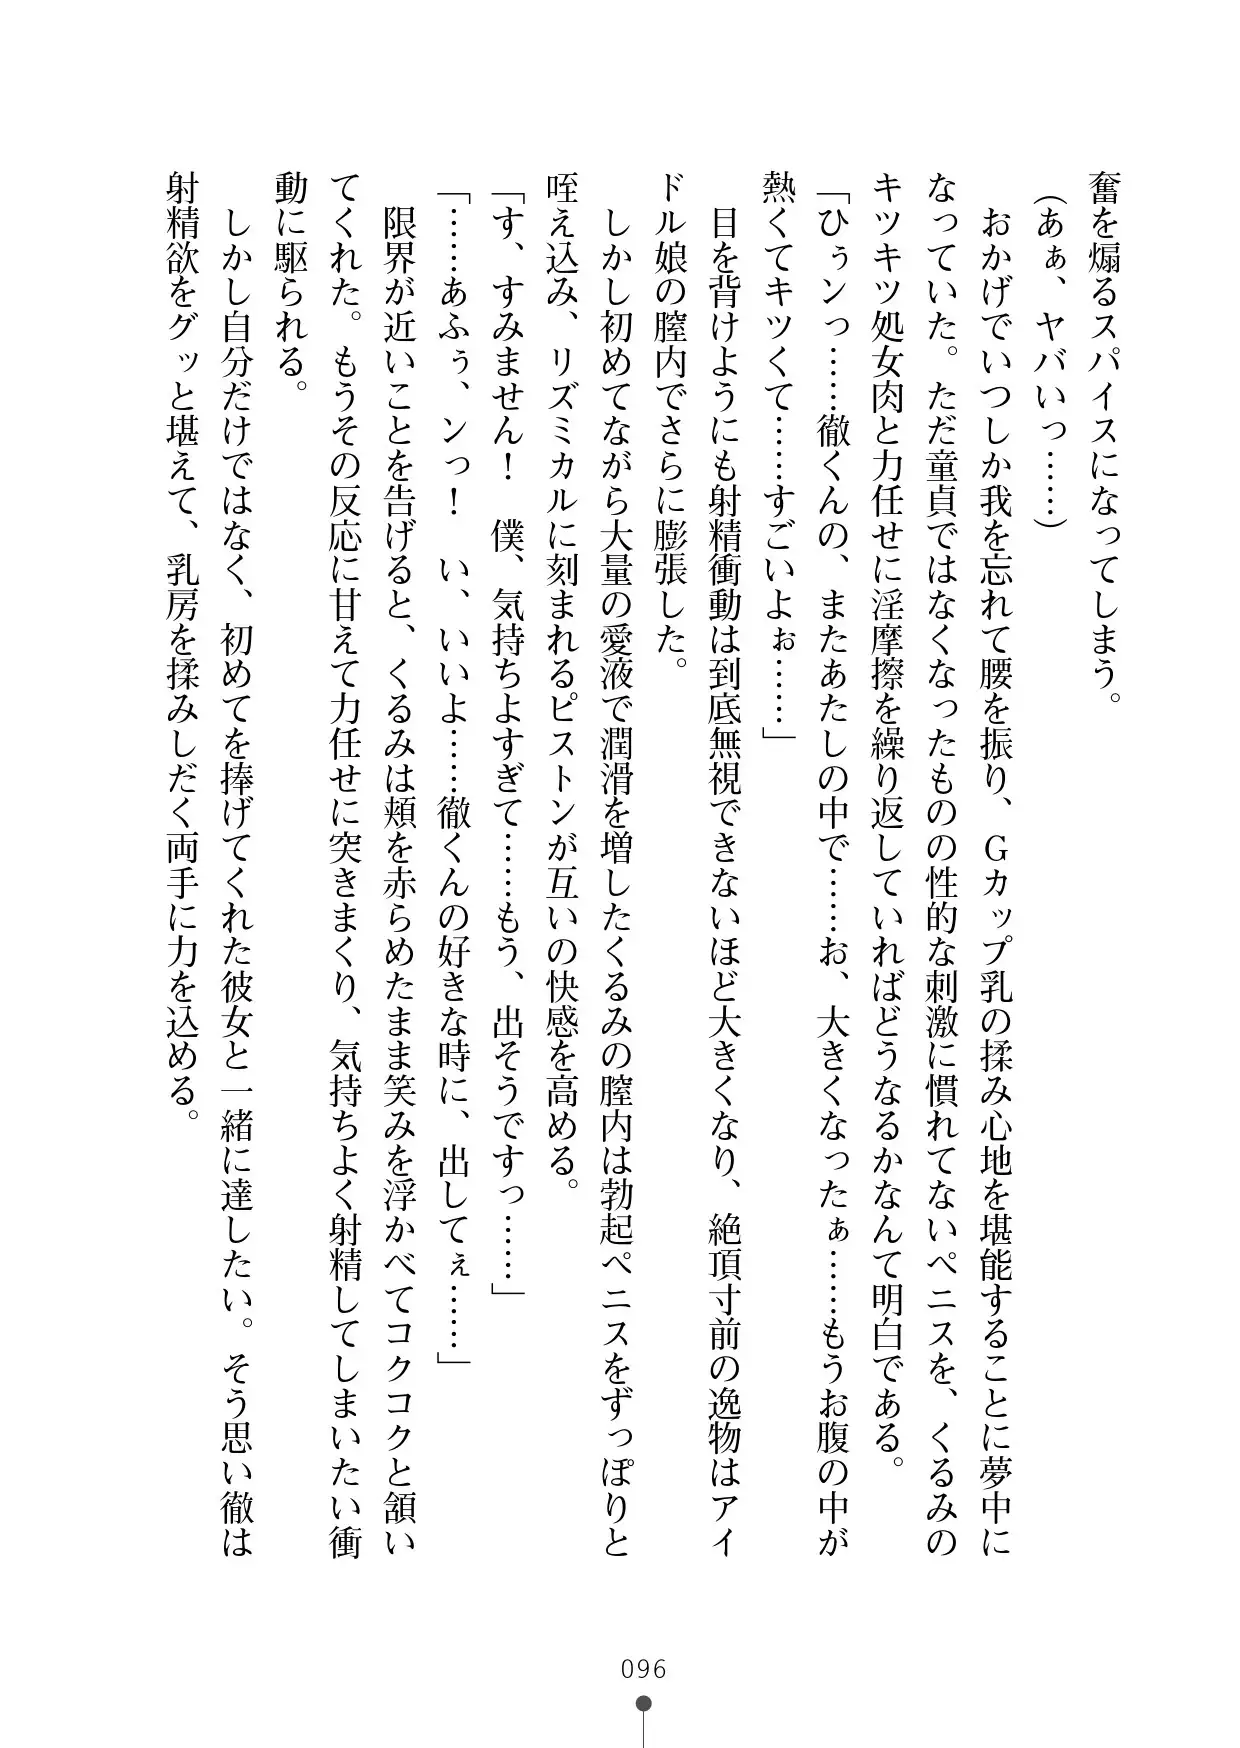 奮を煽るスパイスになってしまう。
（あぁ、ヤバいっ……）
おかげでいつしか我を忘れて腰を振り、Ｇカップ乳の揉み心地を堪能することに夢中に
なっていた。ただ童貞ではなくなったものの性的な刺激に慣れてないペニスを、くるみの
キツキツ処女肉と力任せに淫摩擦を繰り返していればどうなるかなんて明白である。
「ひぅンっ……徹くんの、またあたしの中で……お、大きくなったぁ……もうお腹の中が
熱くてキツくて……すごいよぉ……」
目を背けようにも射精衝動は到底無視できないほど大きくなり、絶頂寸前の逸物はアイ
ドル娘の膣内でさらに膨張した。
しかし初めてながら大量の愛液で潤滑を増したくるみの膣内は勃起ペニスをずっぽりと
咥え込み、リズミカルに刻まれるピストンが互いの快感を高める。
「す、すみません！　僕、気持ちよすぎて……もう、出そうですっ……」
「……あふぅ、ンっ！　い、いいよ……徹くんの好きな時に、出してぇ……」
限界が近いことを告げると、くるみは頬を赤らめたまま笑みを浮かべてコクコクと頷い
てくれた。もうその反応に甘えて力任せに突きまくり、気持ちよく射精してしまいたい衝
動に駆られる。
しかし自分だけではなく、初めてを捧げてくれた彼女と一緒に達したい。そう思い徹は
射精欲をグッと堪えて、乳房を揉みしだく両手に力を込める。
096